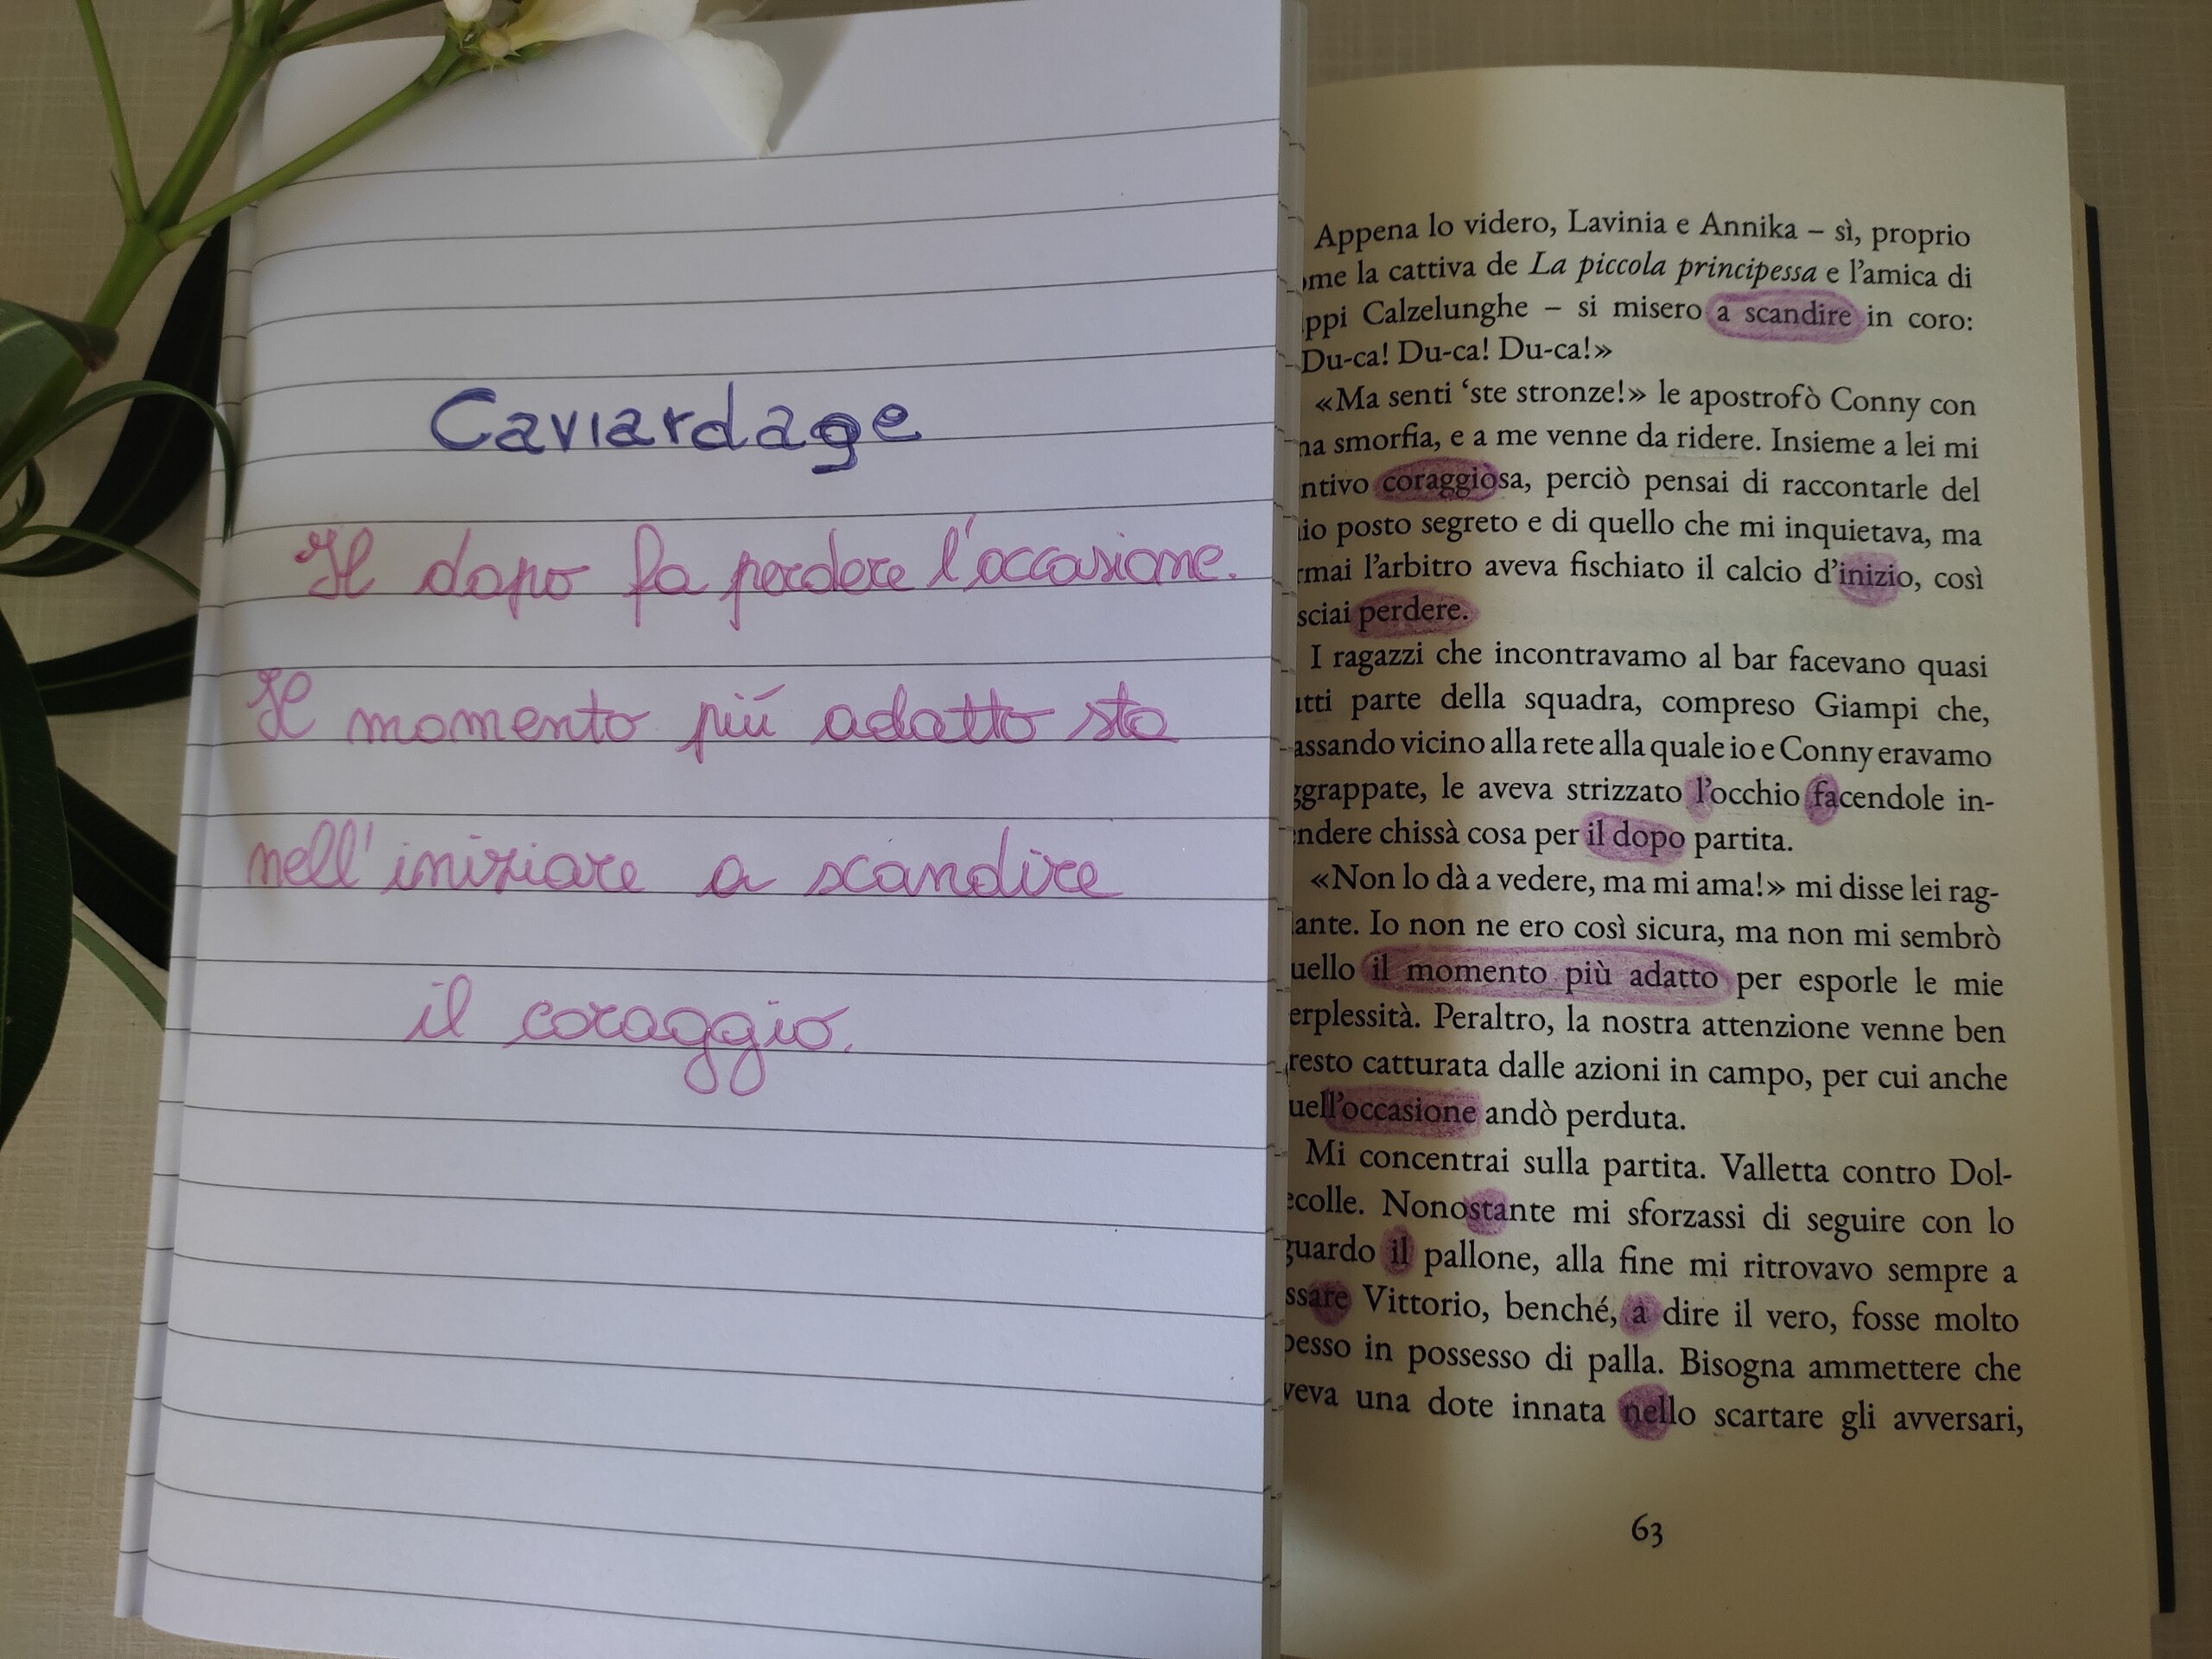 Caviardage
Il dopo fa perdere l'occasione.
Il momento piú adatto sta
nell'iniziare a scandire
il coraggio.
Appena lo videro, Lavinia e Annika – sì, proprio
ome la cattiva de La piccola principessa e l'amica di
ppi Calzelunghe – si misero a scandire in coro:
Du-ca! Du-ca! Du-ca!»
«Ma senti 'ste stronze!» le apostrofò Conny con
na smorfia, e a me venne da ridere. Insieme a lei mi
ntivo coraggiosa, perciò pensai di raccontarle del
io posto segreto e di quello che mi inquietava, ma
rmai l'arbitro aveva fischiato il calcio d'inizio, così
sciai perdere.
I ragazzi che incontravamo al bar facevano quasi
tti parte della squadra, compreso Giampi che,
assando vicino alla rete alla quale io e Conny eravamo
ggrappate, le aveva strizzato l'occhio facendole in-
ndere chissà cosa per il dopo partita.
«Non lo dà a vedere, ma mi ama!» mi disse lei rag-
ante. Io non ne ero così sicura, ma non mi sembrò
uello il momento più adatto per esporle le mie
erplessità. Peraltro, la nostra attenzione venne ben
resto catturata dalle azioni in campo, per cui anche
uell'occasione andò perduta.
Mi concentrai sulla partita. Valletta contro Dol-
ecolle. Nonostante mi sforzassi di seguire con lo
guardo il pallone, alla fine mi ritrovavo sempre a
ssare Vittorio, benché, a dire il vero, fosse molto
pesso in possesso di palla. Bisogna ammettere che
veva una dote innata nello scartare gli avversari,
63